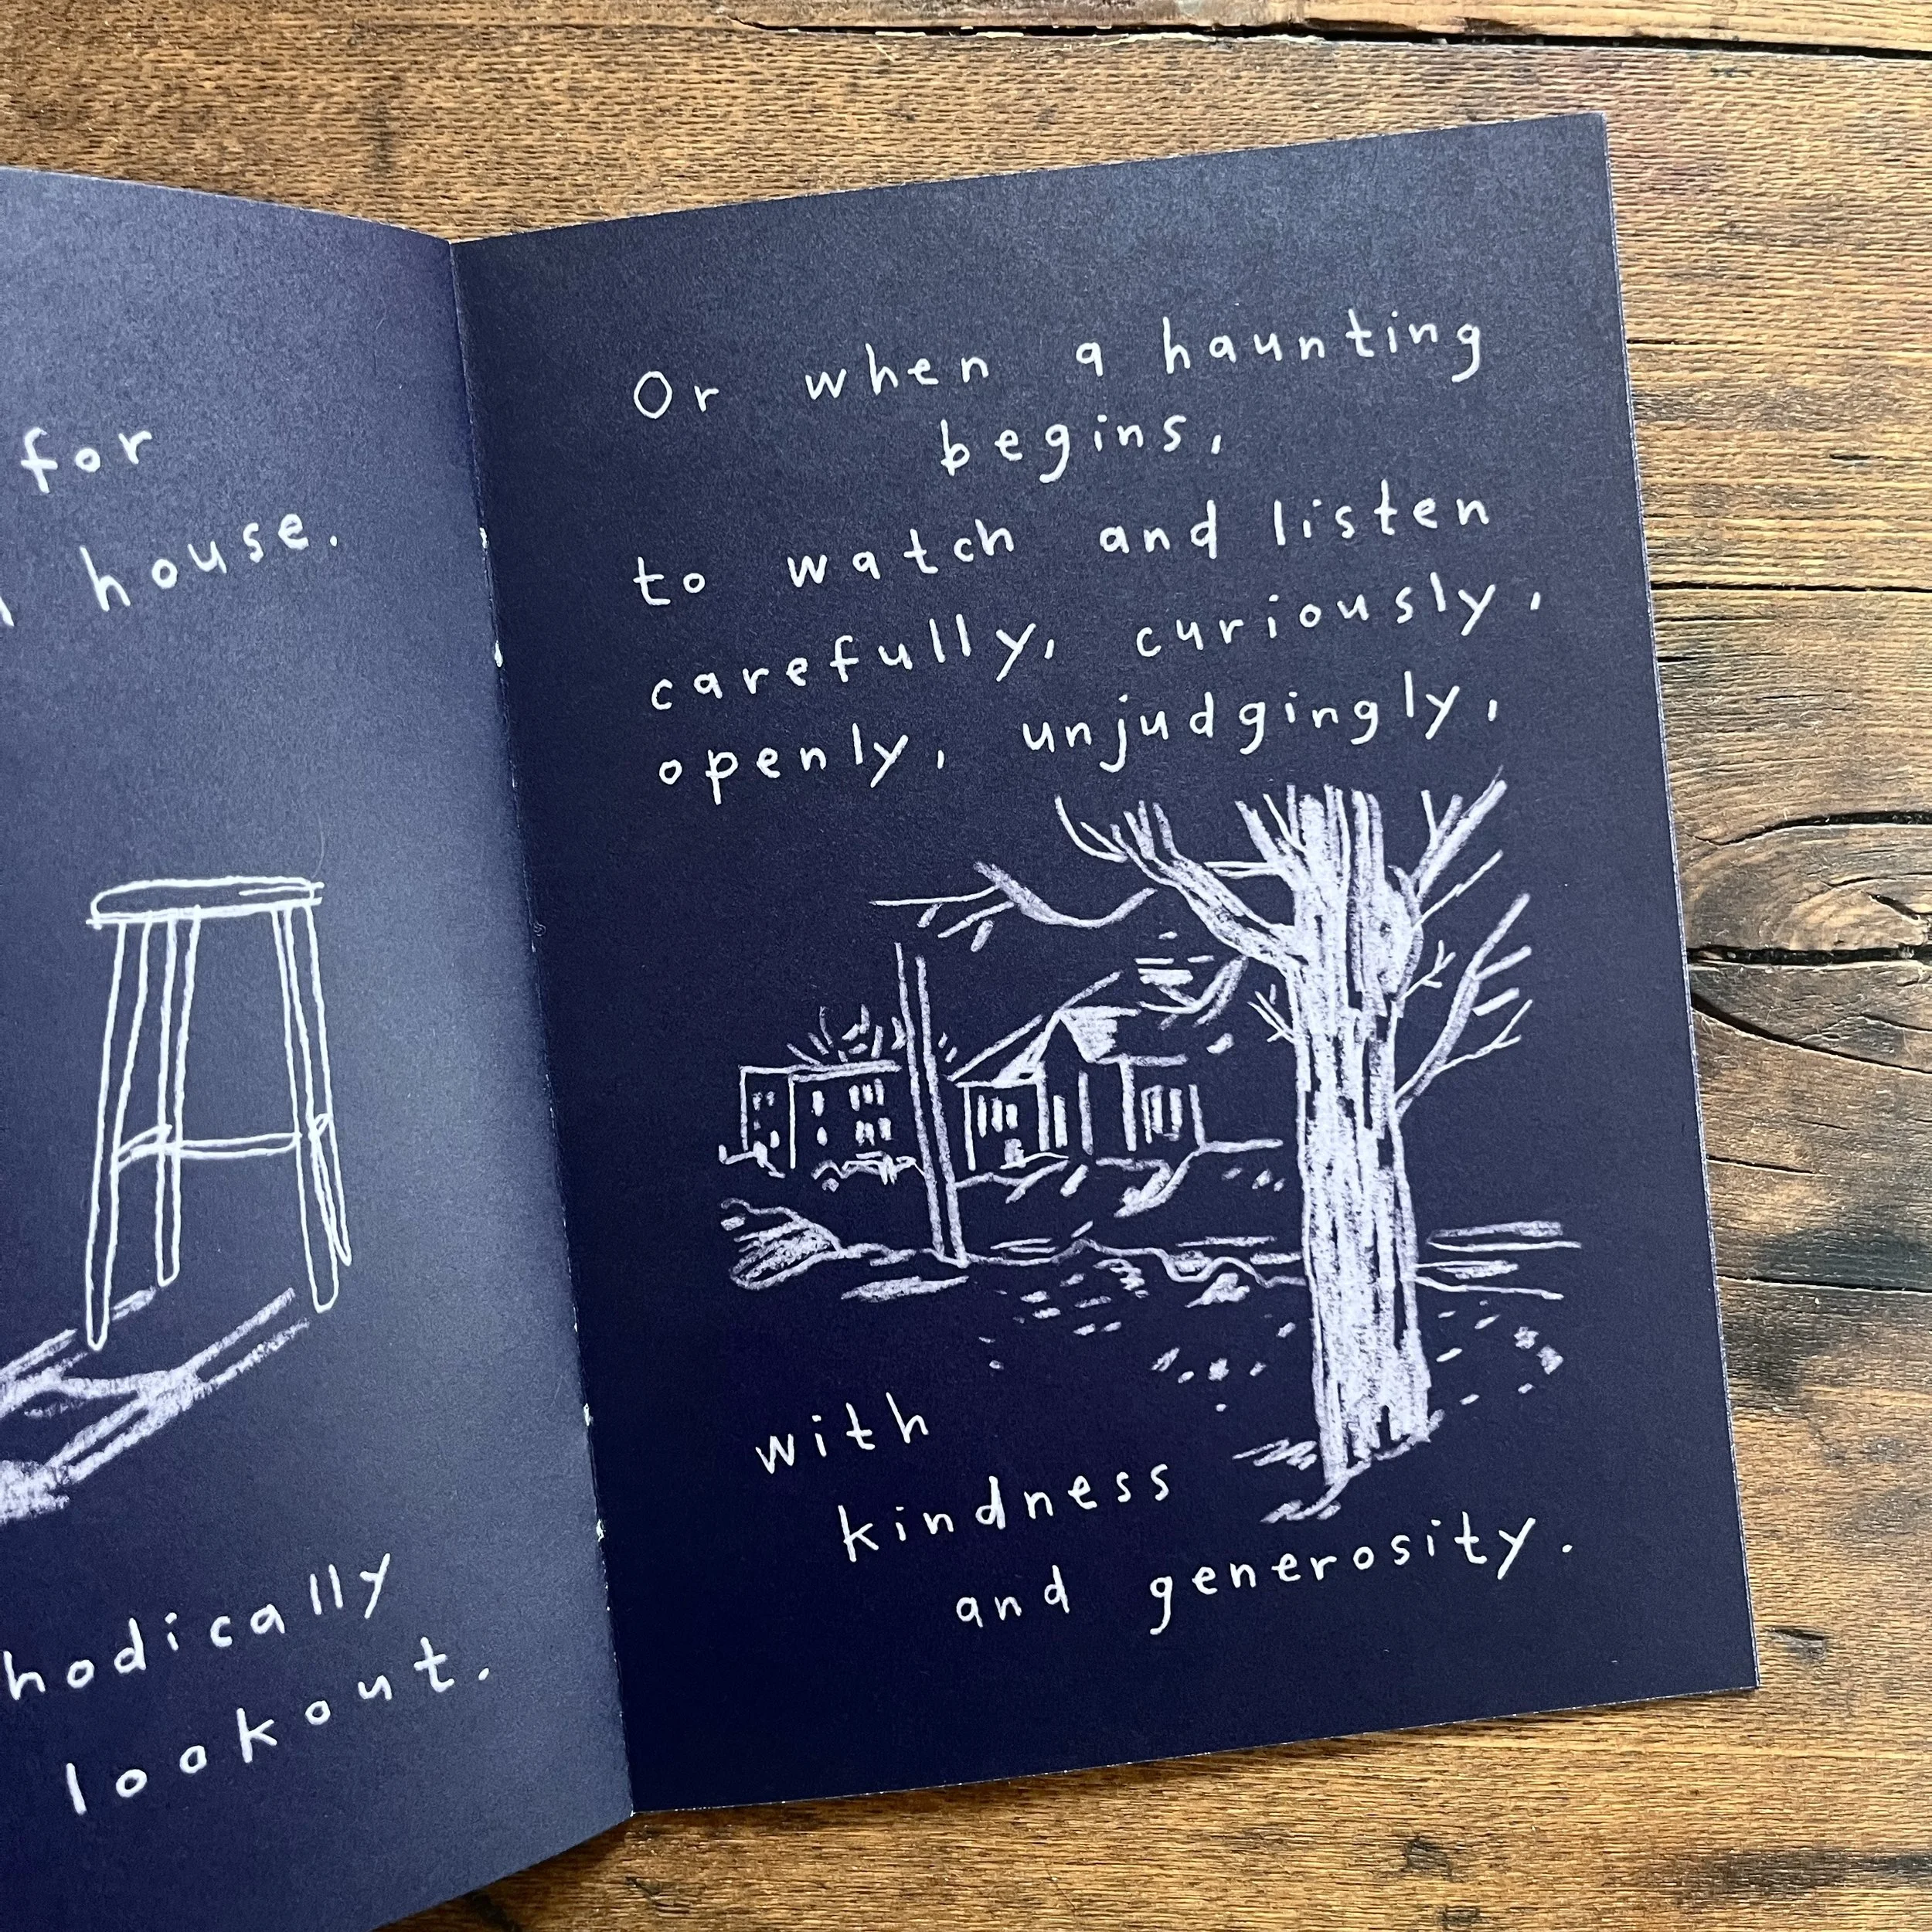 for
house.
hodically
lookout.
Or when a haunting
begins,
to watch and listen
carefully, curiously,
openly, unjudgingly,
with
kindness
and generosity.